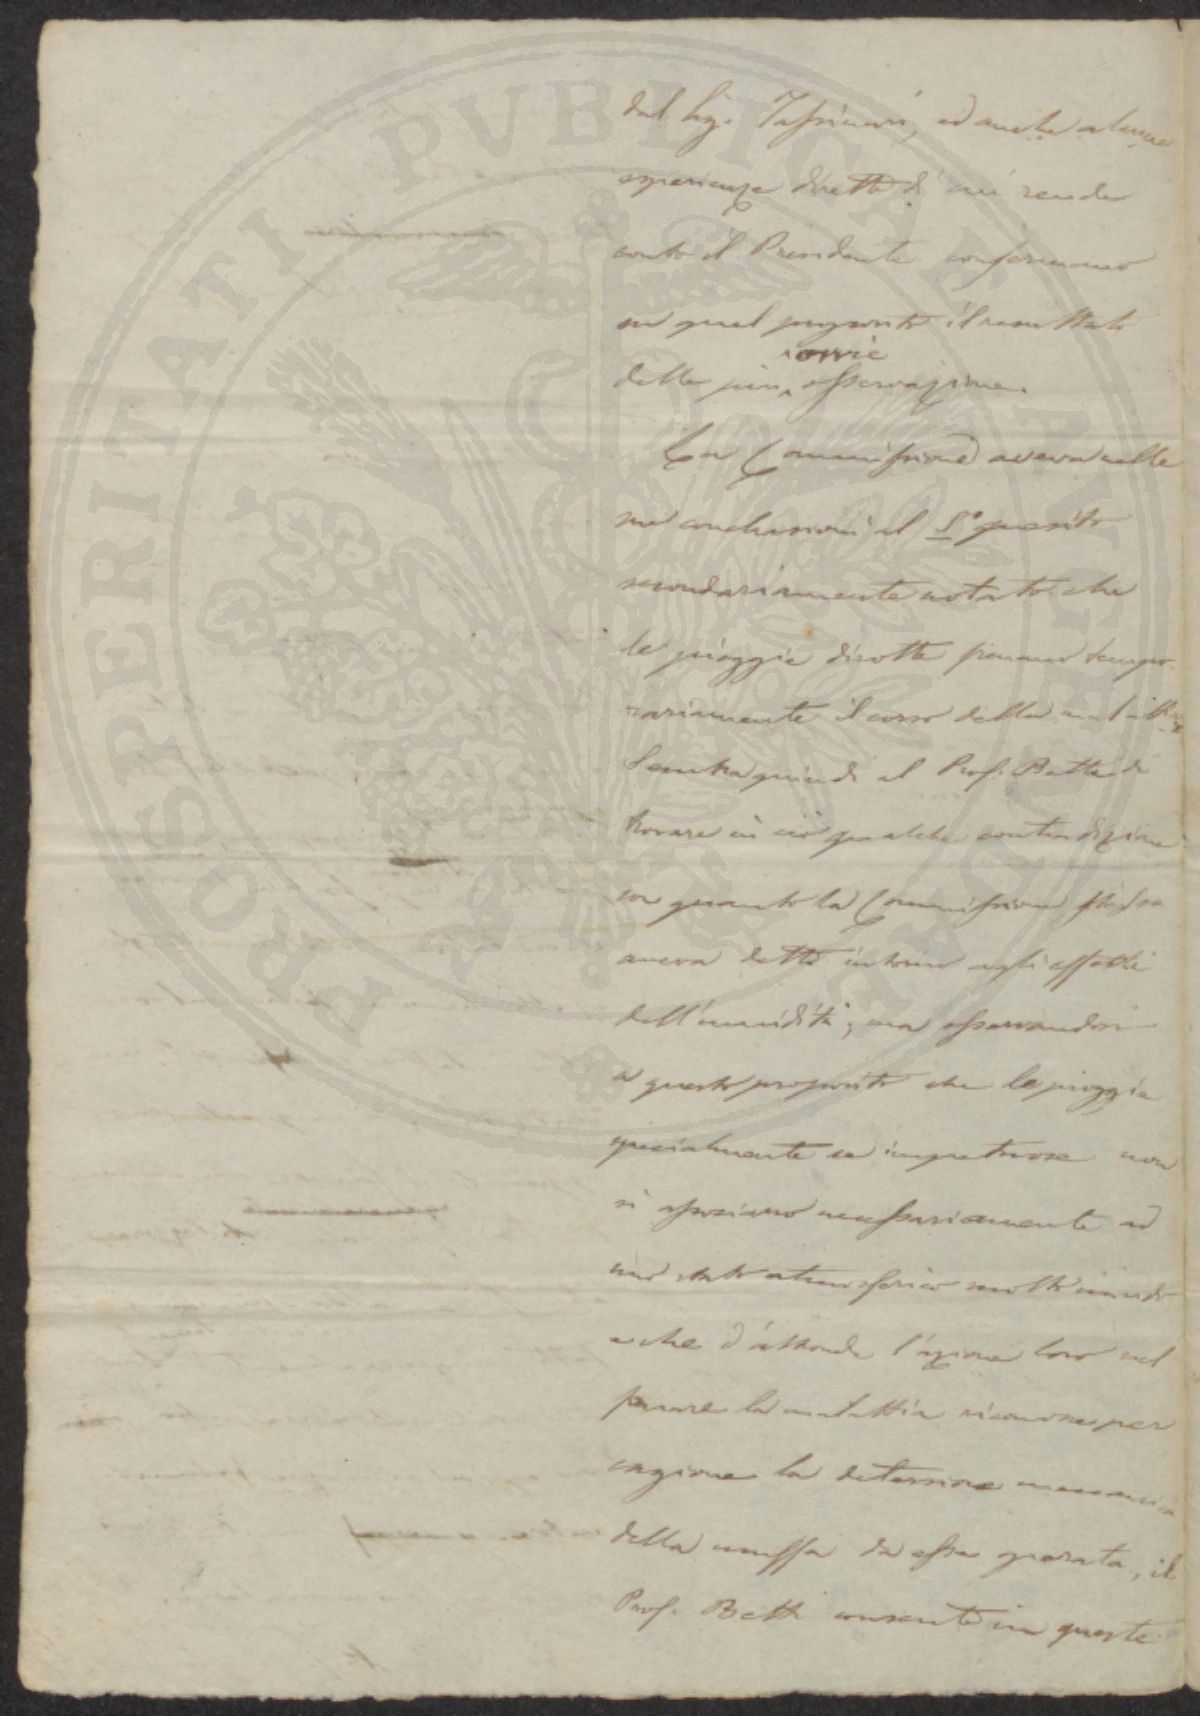 PROSPERITATI PVBLICAE AVGENDAE
dal Sig. Tassinari, ed anche alcune
esperienze dirette di cui rende
conto il Presidente confermano
su quel proposito il resultato
ovvie
delle più osservazione.
La Commissione aveva nelle
sue conclusioni al quesito
secondariamente notato che
le pioggie dirotte frenano tempo
rariamente il corso della malattia
Sembra quindi al Prof. Betti di
trovare in ciò qualche contradizione
con quanto la Commissione stessa
aveva detto intorno agli effetti
dell'umidità; ma osservandosi
a questo proposito che le pioggie
specialmente se impetuose non
si associano necessariamente ad
uno stato atmosferico molto umido
e che d'altronde l'azione loro nel
frenare la malattia riconosce per
cagione la detersione meccanica
della muffa da esse operata, il
Prof. Betti consente in queste